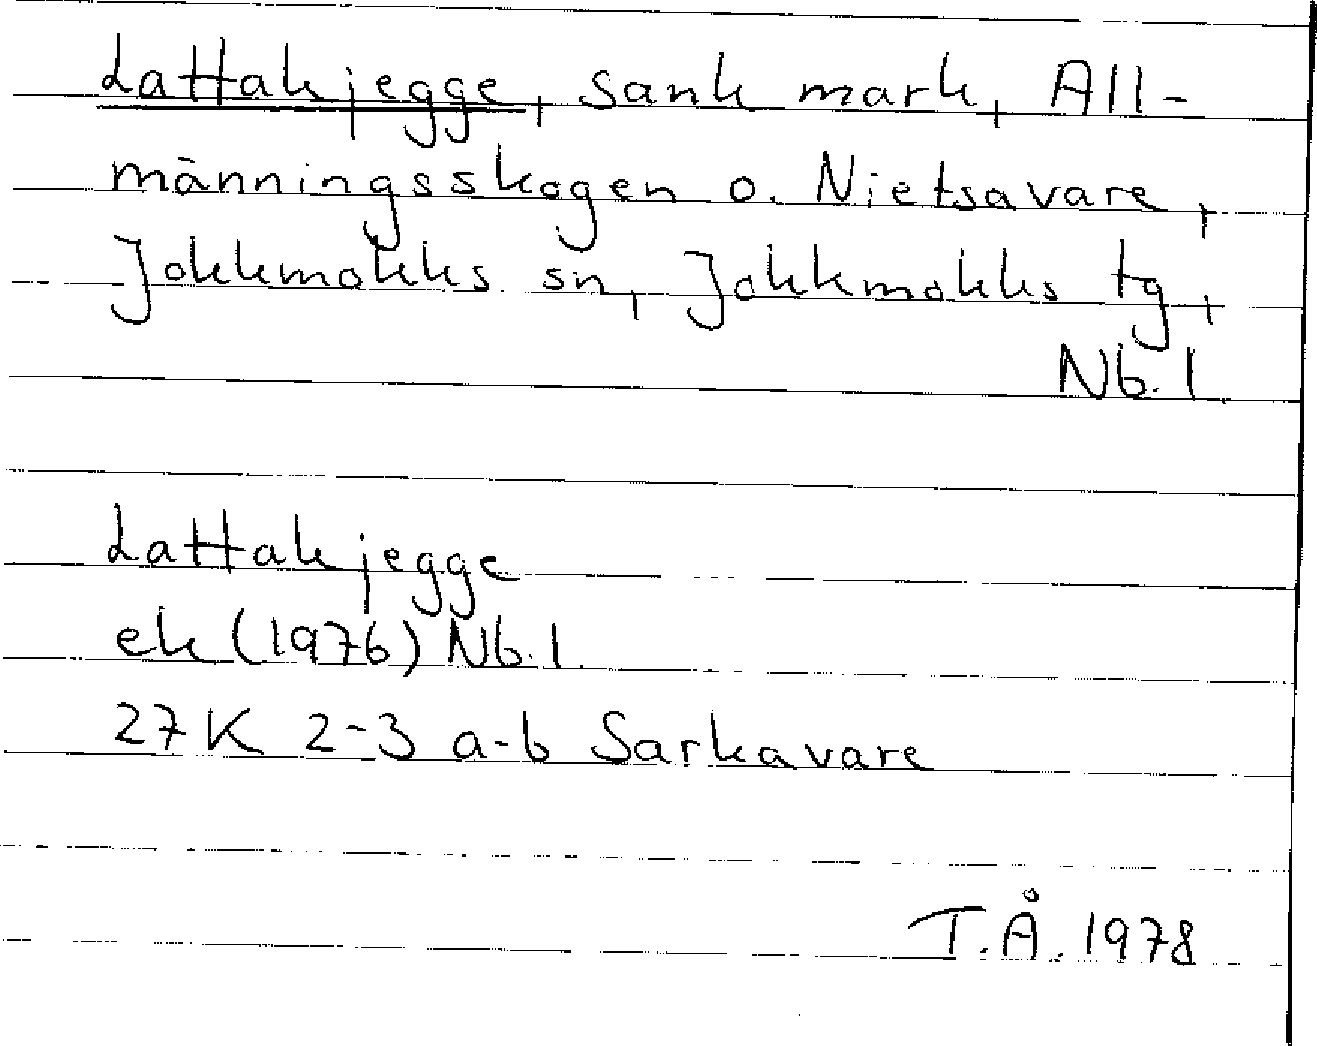 Lattakjegge, sank mark, All-
männingsskogen o. Nietsavare,
Jokkmokks sn, Jokkmokks tg,
Nb. l
Lattakjegge
ek (1976) Nb. l.
27 K 2-3 a-b Sarkavare
T.Å. 1978